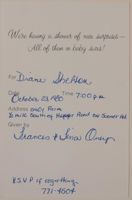 We're having a shower of new surprises—
All of them in baby sizes!
For Diane Shelton
Date October 23, 1980 Time 7:00 p.m.
Address
½ mile South of Happy Point on Sumner Rd.
Given by
Frances & Tina
R.S.V.P. if regretting
771-4504